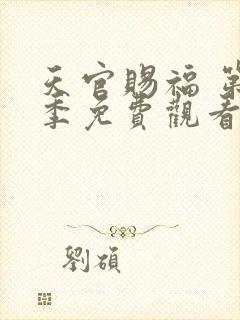 天官賜福 第
季免費觀看
劉碩